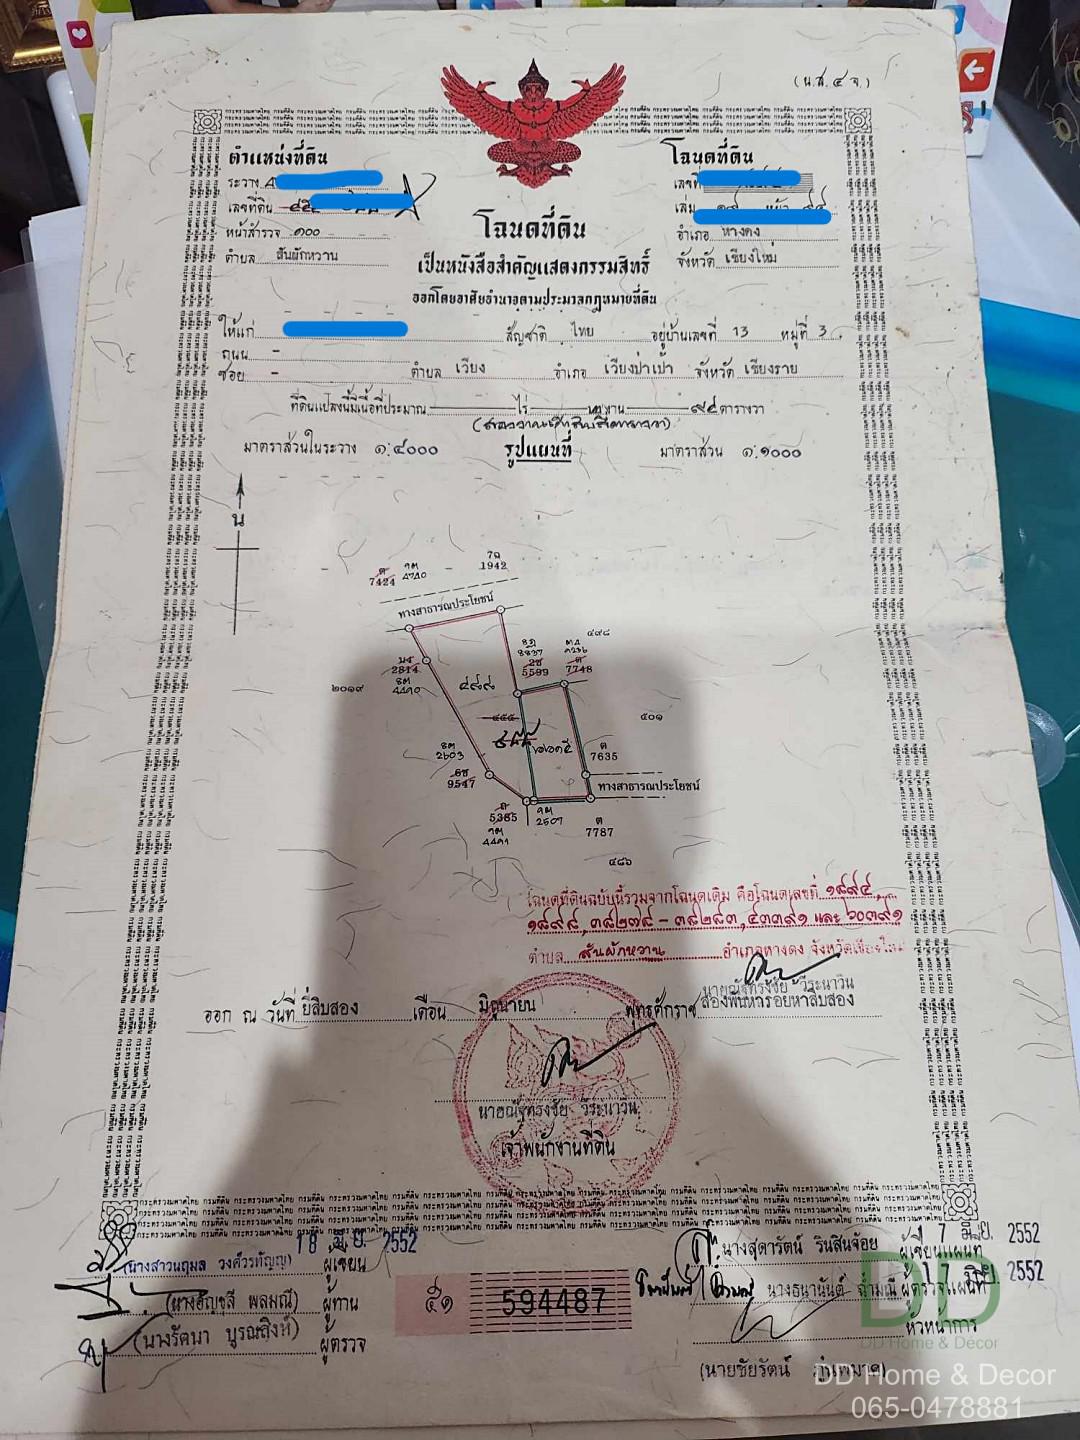 (น.ส.๔ จ.)
ตำแหน่งที่ดิน
ระวาง
เลขที่ดิน
หน้าสำรวจ ๑๐๐
ตำบล สันผักหวาน
โฉนดที่ดิน
เลขที่
เล่ม ๑๙ หน้า ๙๔
อำเภอ หางดง
จังหวัด เชียงใหม่
โฉนดที่ดิน
เป็นหนังสือสำคัญแสดงกรรมสิทธิ์
ออกโดยอาศัยอำนาจตามประมวลกฎหมายที่ดิน
ให้แก่ สัญชาติ ไทย อยู่บ้านเลขที่ 13 หมู่ที่ 3
ถนน -
ซอย - ตำบล เวียง อำเภอ เวียงป่าเป้า จังหวัด เชียงราย
ที่ดินแปลงนี้มีเนื้อที่ประมาณ ไร่ งาน ๙๔ ตารางวา
(สองงานเก้าสิบสี่ตารางวา)
มาตราส่วนในระวาง ๑:๔๐๐๐ รูปแผนที่ มาตราส่วน ๑:๑๐๐๐
น
7424
1942
ทางสาธารณประโยชน์
2814
๔๙๙
5599
7748
๔๙๘
๒๐๑๙
๕๐๑
ต
7635
9547
ทางสาธารณประโยชน์
5385
2507
ต
7787
๔๘๖
โฉนดที่ดินฉบับนี้รวมจากโฉนดเดิม คือโฉนดเลขที่ ๑๘๙๔,
๑๘๙๘, ๓๘๒๗๘ - ๓๘๒๘๓, ๔๓๓๙๑ และ ๖๐๓๙๑
ตำบล สันผักหวาน อำเภอหางดง จังหวัดเชียงใหม่
นายณัฐทรงชัย วีระนาวิน
ออก ณ วันที่ ยี่สิบสอง เดือน มิถุนายน พุทธศักราช สองพันห้าร้อยห้าสิบสอง
นายณัฐทรงชัย วีระนาวิน
เจ้าพนักงานที่ดิน
18 มิ.ย. 2552
(นางสาวนฤมล วงศ์วรหัญญู) ผู้เขียน
(นางอัญชลี พลมณี) ผู้ทาน
(นางรัตนา บูรณถิงห์) ผู้ตรวจ
๕๑ 594487
นางสุดารัตน์ รินสินจ้อย ผู้เขียนแผนที่ 17 มิ.ย. 2552
นางธนานันต์ ผู้ตรวจแผนที่ 17 มิ.ย. 2552
หัวหน้าการ
(นายชัยรัตน์
DD
DD Home & Decor
DD Home & Decor
065-0478881